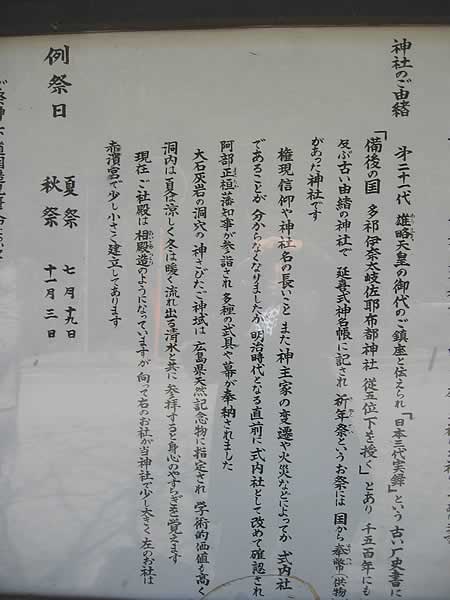 神社のご由緒
第二十一代 雄略天皇の御代のご鎮座と伝えられ「日本三代実録」という古い歴史書に
「備後の国 多祁伊奈太岐佐耶布都神社 従五位下を授く」とあり 千五百年にも
及ぶ古い由緒の神社で 延喜式神名帳に記され 祈年祭というお祭には 国から奉幣(供物
があった神社です
権現信仰や神社名の長いこと また神主家の変遷や火災などによってか 式内社
であることが 分からなくなりましたが 明治時代となる直前に式内社として改めて確認され
阿部正桓藩知事が参詣され 多種の武具や幕が奉納されました
大石灰岩の洞穴の神さびたご神域は 広島県天然記念物に指定され 学術的価値も高く
洞内は夏は涼しく冬は暖く流れ出る清水と共に 参拝すると身心のやすらぎを覚えます
現在 ご社殿は相殿造のようになっていますが 向って右のお社が当神社で少し大きく 左のお社は
赤濱宮で少し小さく建立してあります
例祭日
夏祭 七月十九日
秋祭 十一月三日